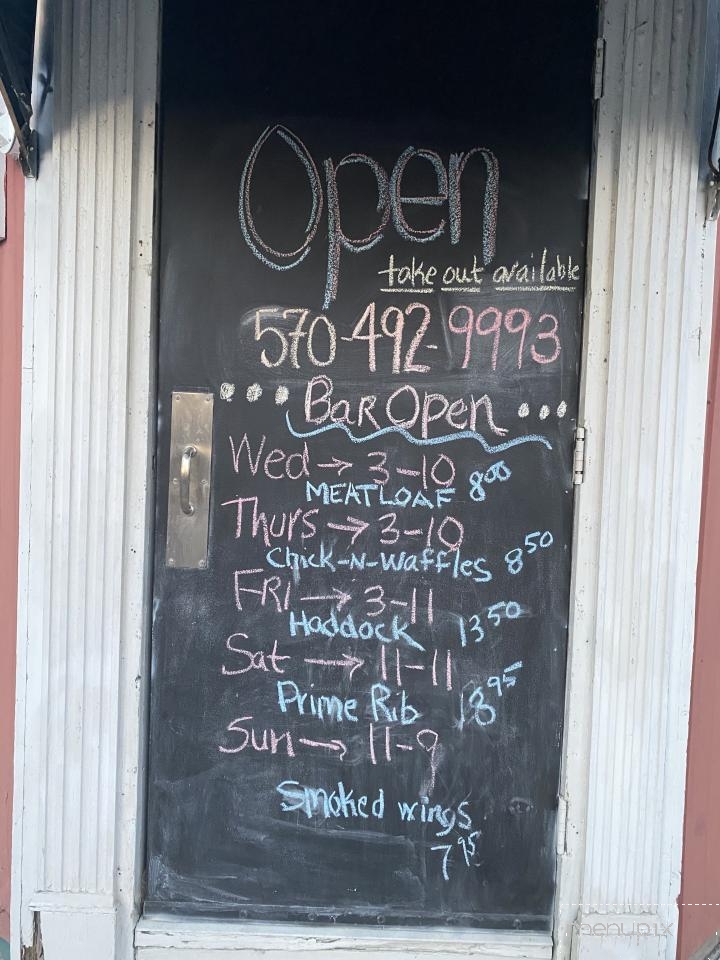 Open
take out available
570-492-9993
... Bar Open ...
Wed → 3-10
MEATLOAF 8.00
Thurs → 3-10
Chick-N-Waffles 8.50
FRI → 3-11
Haddock 13.50
Sat → 11-11
Prime Rib 18.95
Sun → 11-9
Smoked wings
7.95
menupix